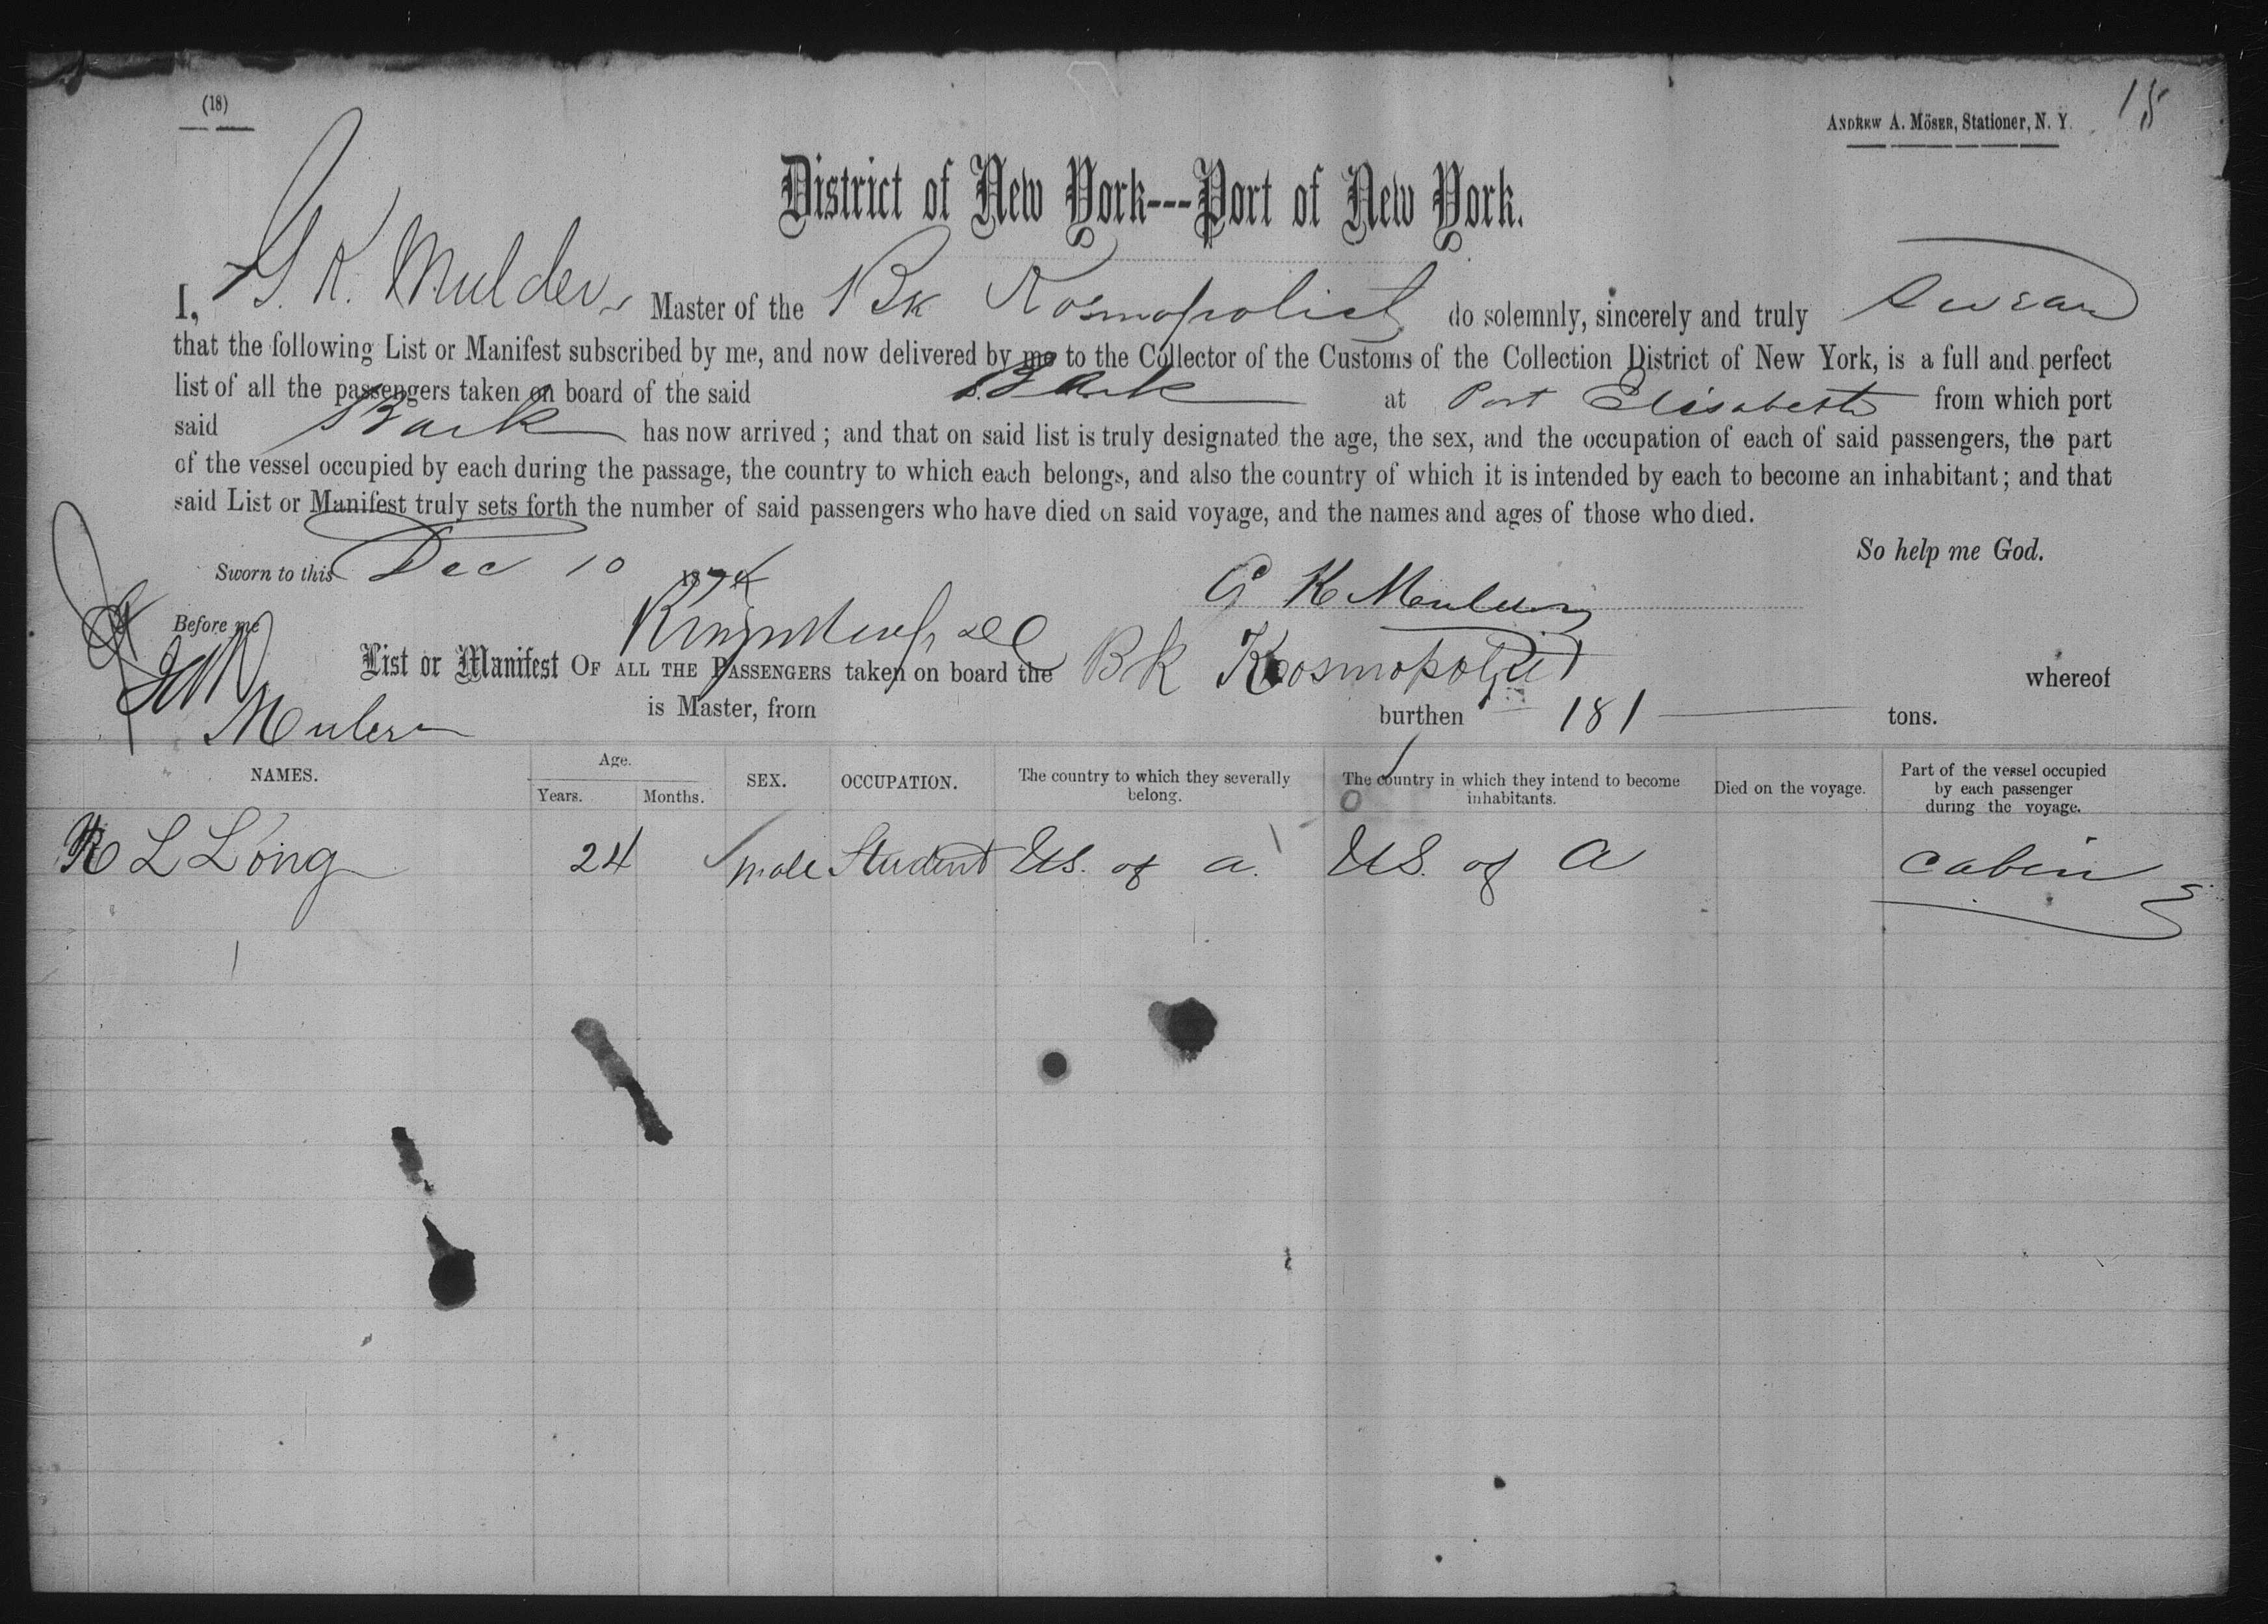 (18)
ANDREW A. MÖSER, Stationer, N. Y.
15
District of New York---Port of New York.
I, G. K. Mulder Master of the Bk Kosmopoliet do solemnly, sincerely and truly swear
that the following List or Manifest subscribed by me, and now delivered by me to the Collector of the Customs of the Collection District of New York, is a full and perfect
list of all the passengers taken on board of the said Bark at Port Elisabeth from which port
said Bark has now arrived; and that on said list is truly designated the age, the sex, and the occupation of each of said passengers, the part
of the vessel occupied by each during the passage, the country to which each belongs, and also the country of which it is intended by each to become an inhabitant; and that
said List or Manifest truly sets forth the number of said passengers who have died on said voyage, and the names and ages of those who died.
So help me God.
Sworn to this Dec 10 1874
Before me
List or Manifest OF ALL THE PASSENGERS taken on board the Bk Kosmopoliet whereof
is Master, from burthen 181 tons.
NAMES. Age. Years. Months. SEX. OCCUPATION. The country to which they severally belong. The country in which they intend to become inhabitants. Died on the voyage. Part of the vessel occupied by each passenger during the voyage.
L Long 24 male Student US. of a. US. of A cabin